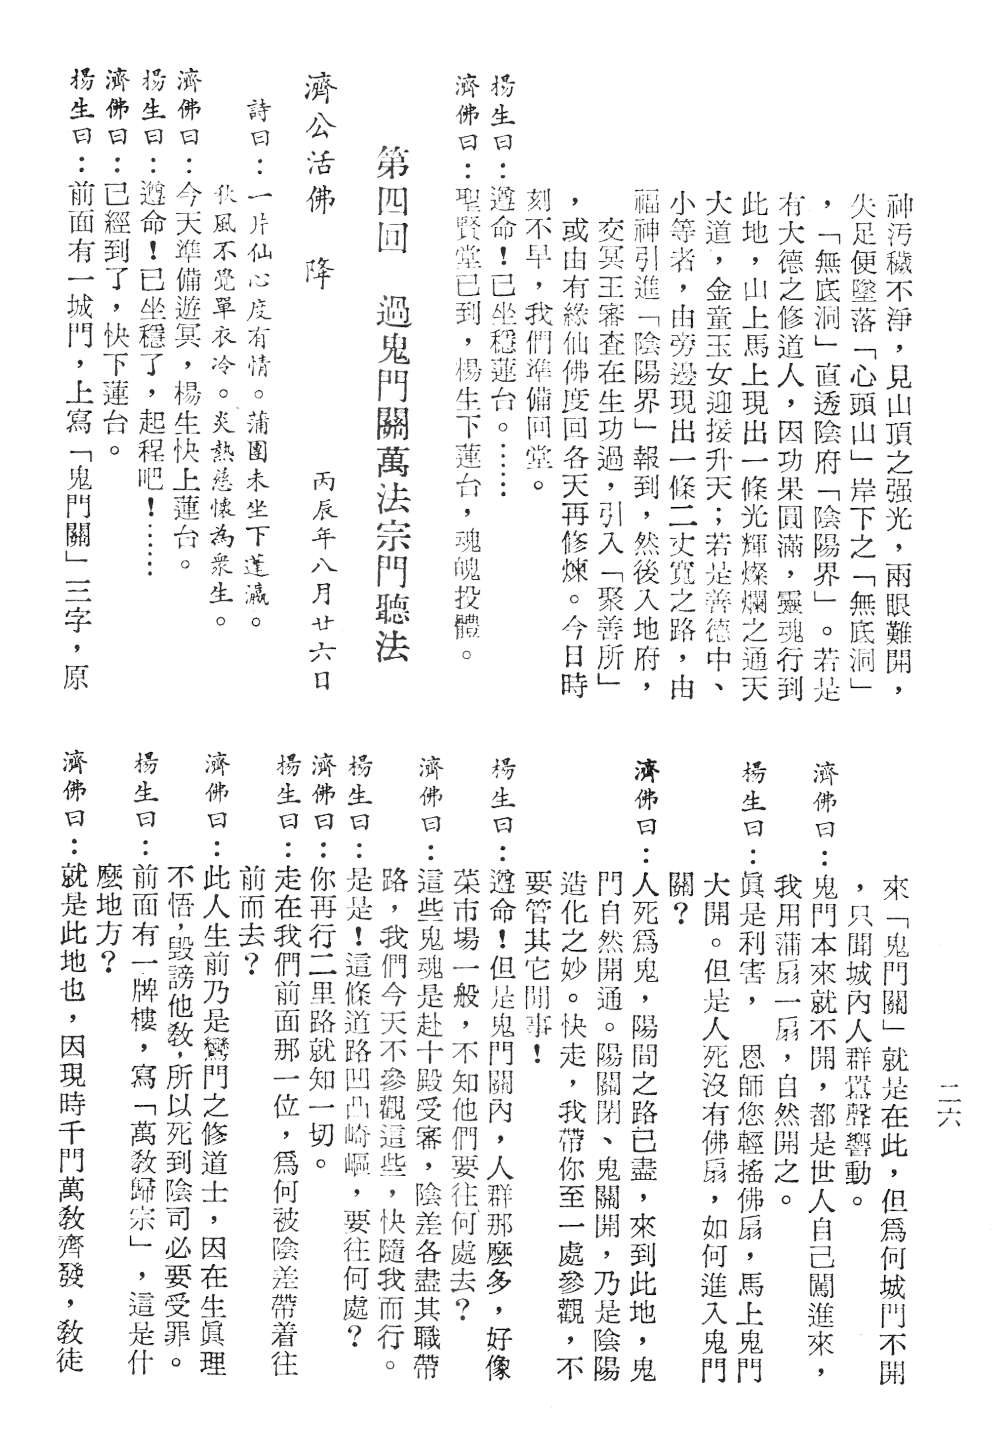 神汚穢不淨，見山頂之强光，兩眼難開，
失足便墜落「心頭山」岸下之「無底洞」
，「無底洞」直透陰府「陰陽界」。若是
有大德之修道人，因功果圓滿，靈魂行到
此地，山上馬上現出一條光輝燦爛之通天
大道，金童玉女迎接升天；若是善德中、
小等者，由旁邊現出一條二丈寬之路，由
福神引進「陰陽界」報到，然後入地府，
交冥王審查在生功過，引入「聚善所」
，或由有緣仙佛度回各天再修煉。今日時
刻不早，我們準備回堂。
楊生曰：遵命！已坐穩蓮台。……
濟佛曰：聖賢堂已到，楊生下蓮台，魂魄投體。
第四回　過鬼門關萬法宗門聽法
濟公活佛　降　　丙辰年八月廿六日
詩曰：一片仙心度有情。蒲團未坐下蓬瀛。
秋風不覺單衣冷。炎熱慈懷為衆生。
濟佛曰：今天準備遊冥，楊生快上蓮台。
楊生曰：遵命！已坐穩了，起程吧！……
濟佛曰：已經到了，快下蓮台。
楊生曰：前面有一城門，上寫「鬼門關」三字，原
二六
來「鬼門關」就是在此，但爲何城門不開
，只聞城內人群囂聲響動。
濟佛曰：鬼門本來就不開，都是世人自己闖進來，
我用蒲扇一扇，自然開之。
楊生曰：眞是利害，　恩師您輕搖佛扇，馬上鬼門
大開。但是人死沒有佛扇，如何進入鬼門
關？
濟佛曰：人死爲鬼，陽間之路已盡，來到此地，鬼
門自然開通。陽關閉、鬼關開，乃是陰陽
造化之妙。快走，我帶你至一處參觀，不
要管其它閒事！
楊生曰：遵命！但是鬼門關內，人群那麽多，好像
菜市場一般，不知他們要往何處去？
濟佛曰：這些鬼魂是赴十殿受審，陰差各盡其職帶
路，我們今天不參觀這些，快隨我而行。
楊生曰：是是！這條道路凹凸崎嶇，要往何處？
濟佛曰：你再行二里路就知一切。
楊生曰：走在我們前面那一位，爲何被陰差帶着往
前而去？
濟佛曰：此人生前乃是鸞門之修道士，因在生眞理
不悟，毀謗他敎，所以死到陰司必要受罪。
楊生曰：前面有一牌樓，寫「萬敎歸宗」，這是什
麽地方？
濟佛曰：就是此地也，因現時千門萬敎齊發，敎徒